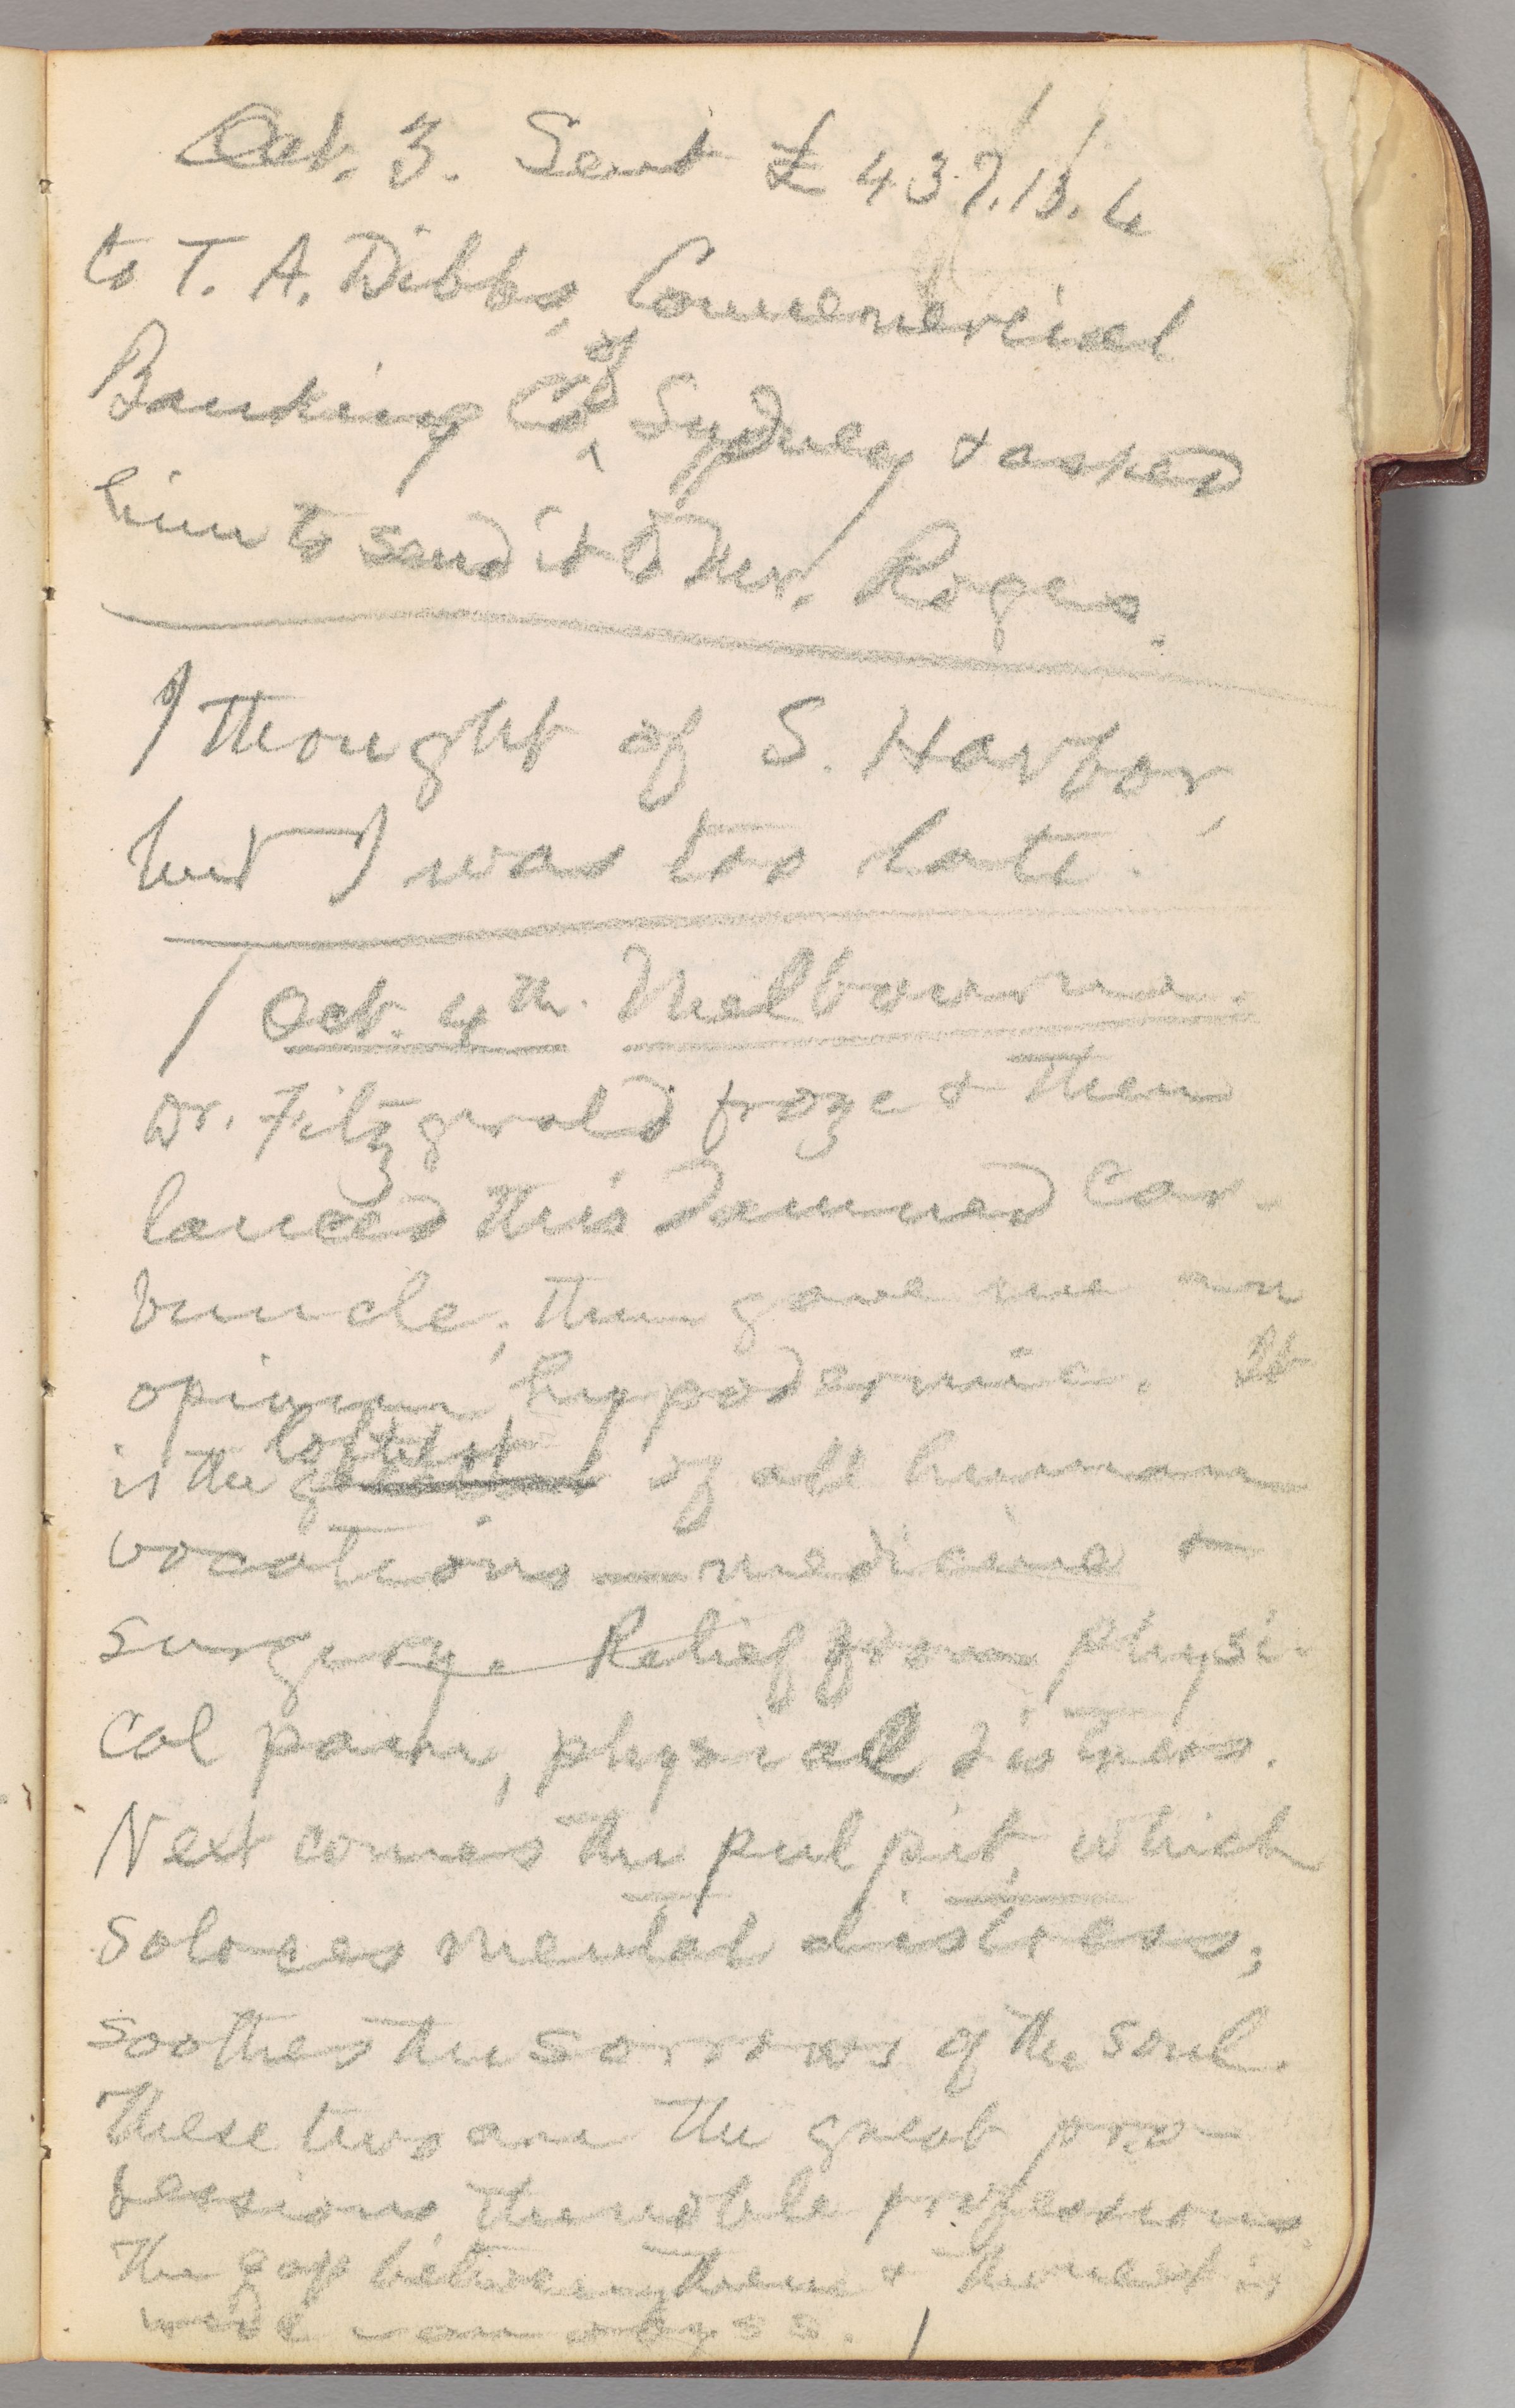 Oct. 3. Sent £437.13.4
to T. A. Dibbs, Commercial
Banking Co of Sydney & asked
him to send it to Mr. Rogers.
I thought of S. Harbor,
but I was too late.
Oct. 4th. Melbourne.
Dr. Fitzgerald froze & then
lanced this damned car-
buncle; then gave me an
opium hypodermic. It
is the loftiest of all human
vocations — medicine &
surgery. Relief from physi-
cal pain, physical distress.
Next comes the pulpit, which
solaces mental distress;
soothes the sorrows of the soul.
These two are the great pro-
fessions, the noble professions.
The gap between them & the next is
wide — an abyss.